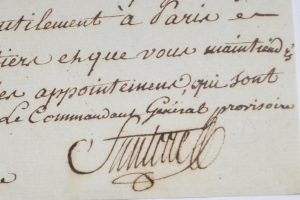 utilement à Paris et
tiers et que vous maintiend
es appointemens, qui sont
Le Commandant Général provisoire
Santerre